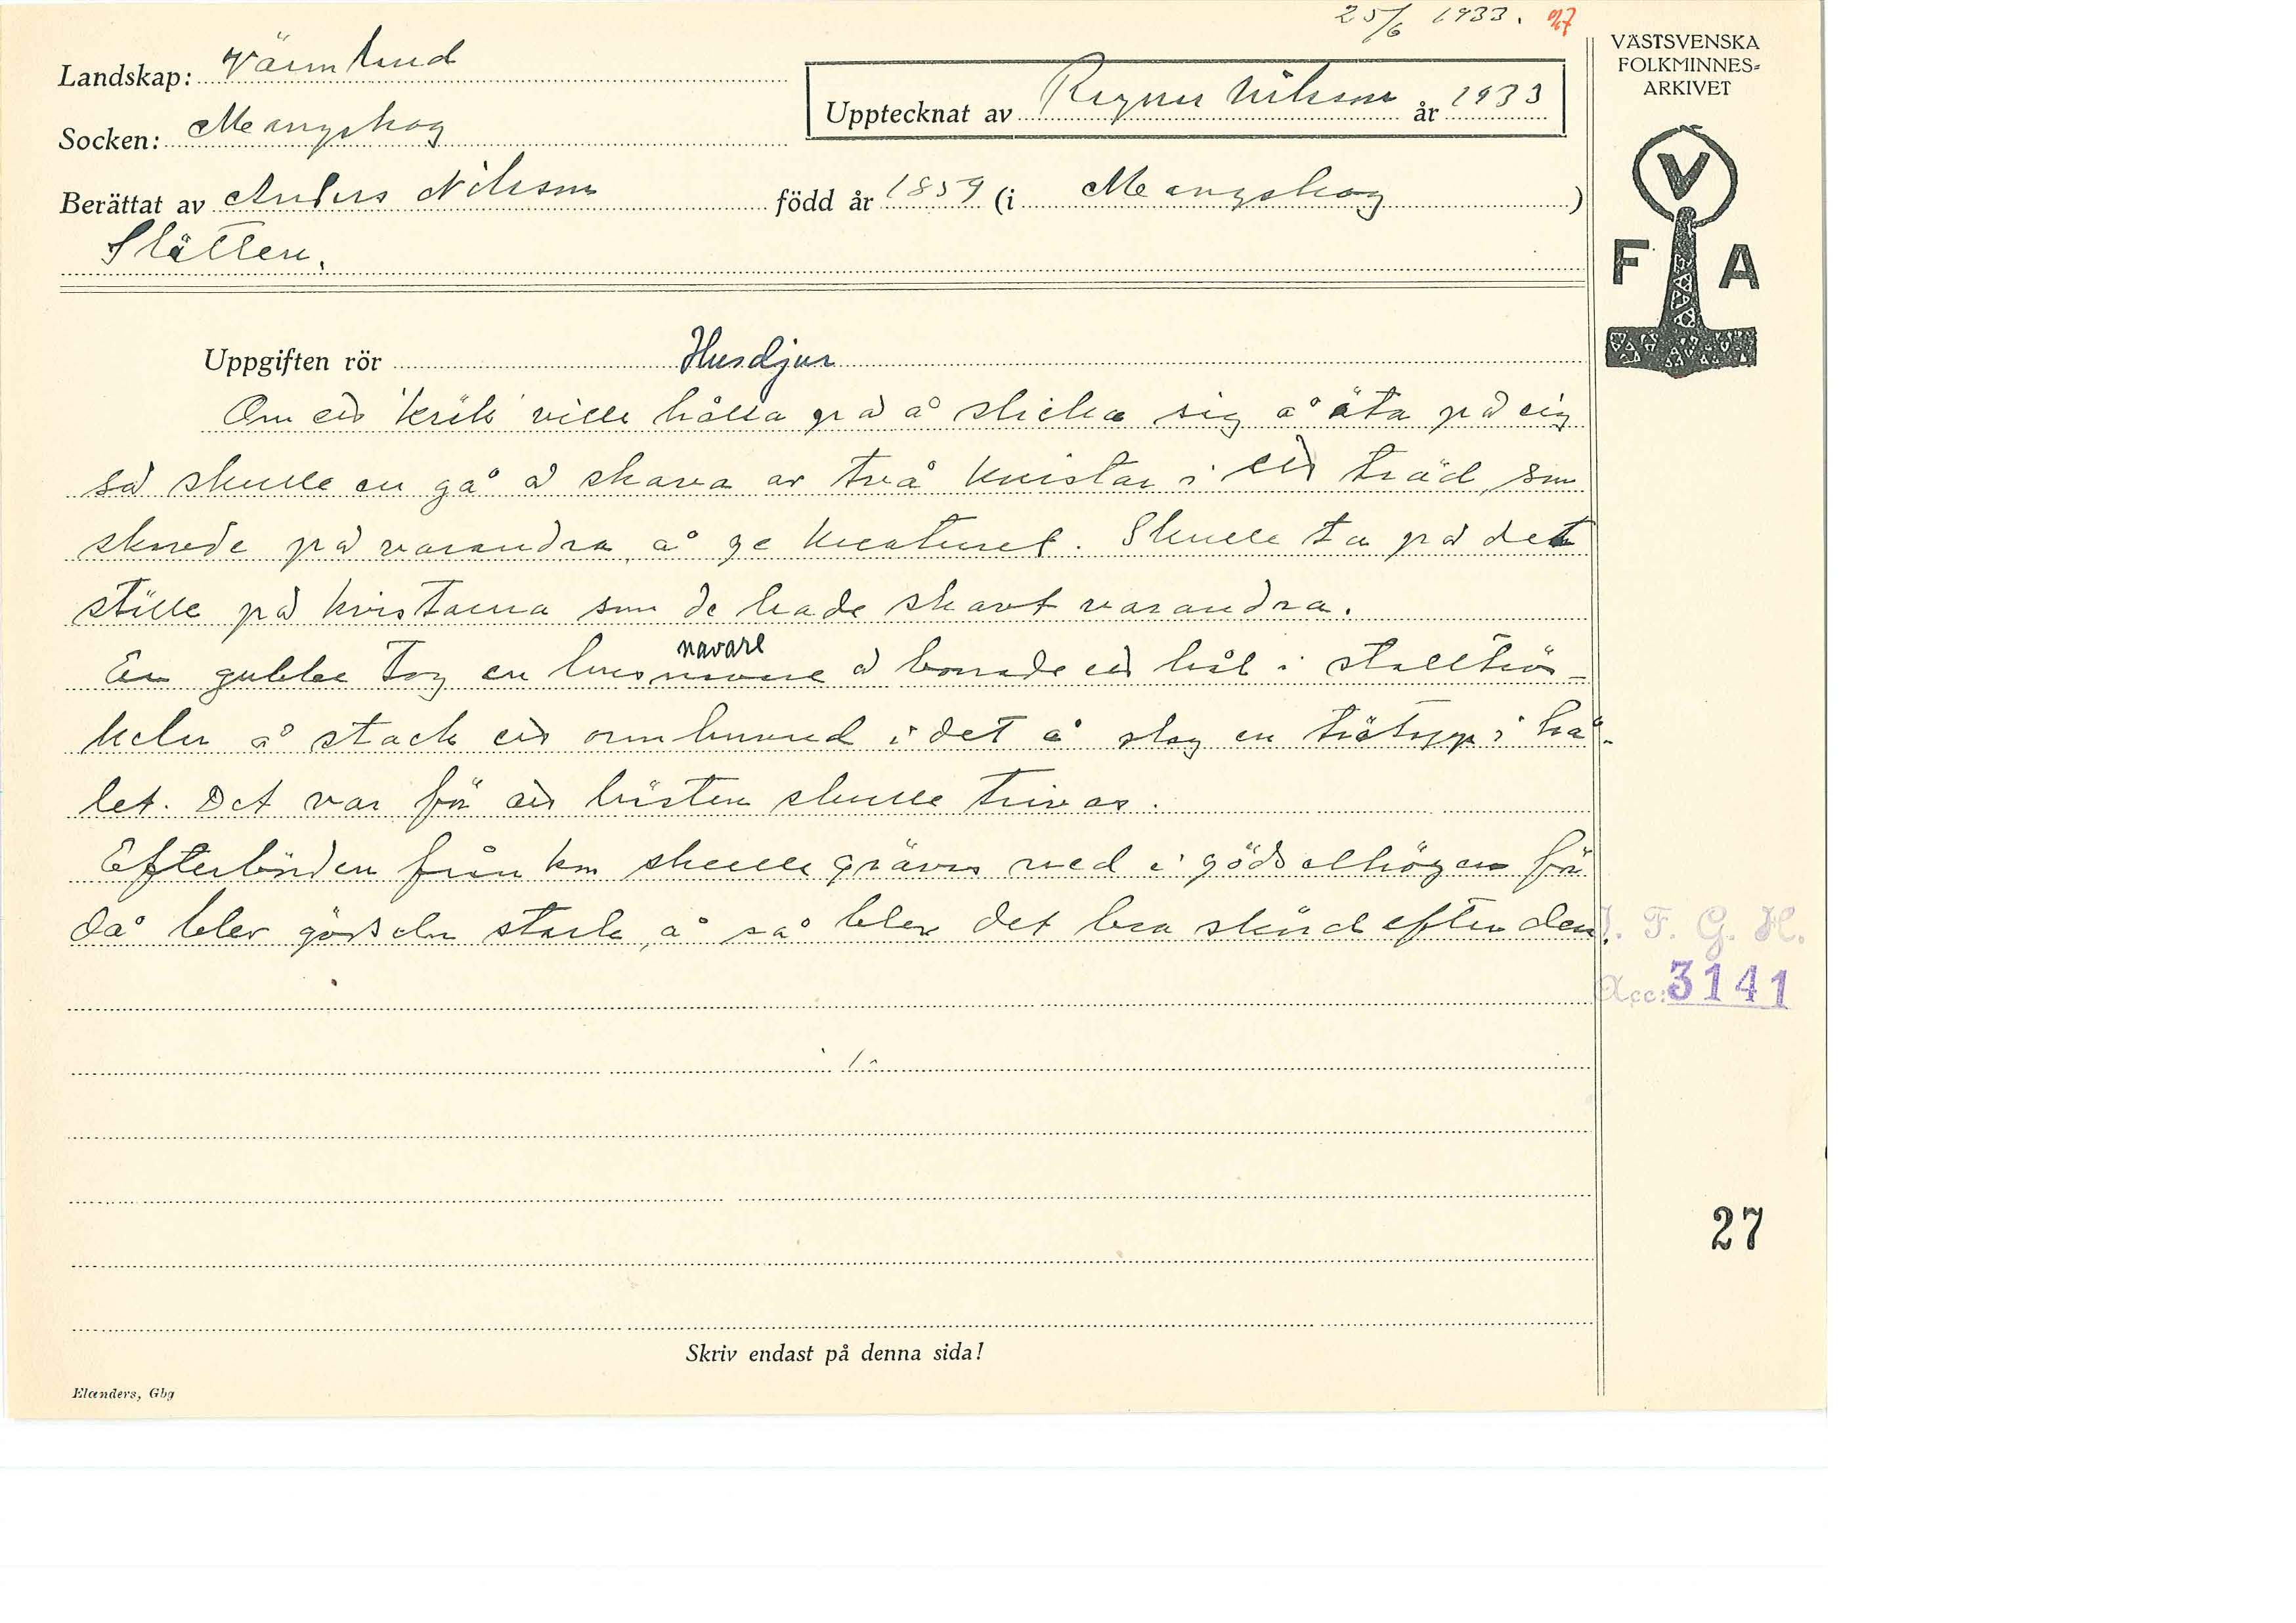 25/6 1933.
VÄSTSVENSKA
FOLKMINNES-
ARKIVET
Landskap: Värmland
Upptecknat av Ragnar Nilsson år 1933
Socken: Mangskog
Berättat av Anders Nilsson född år 1859 (i Mangskog )
Slätten.
V
F A
Uppgiften rör Husdjur
Om ett 'krik' ville hålla på å slicka sig å äta på sig
så skulle en gå å skava av två kvistar i ett träd, som
skavde på varandra, å ge kreaturet. Skulle ta på det
ställe på kvistarna som de hade skavt varandra.
navare
En gubbe tog en å borrade ett hål i stalltrös-
keln å stack ett ormhuvud i det å slog en träтapp i hå-
let. Det var för att hästen skulle trivas.
Efterbörden från kon skulle grävas ned i gödselhögen för
då blev gödseln stark, å så blev det bra skörd efter den.
I. F. G. H.
Acc: 3141
27
Skriv endast på denna sida!
Elanders, Gbg